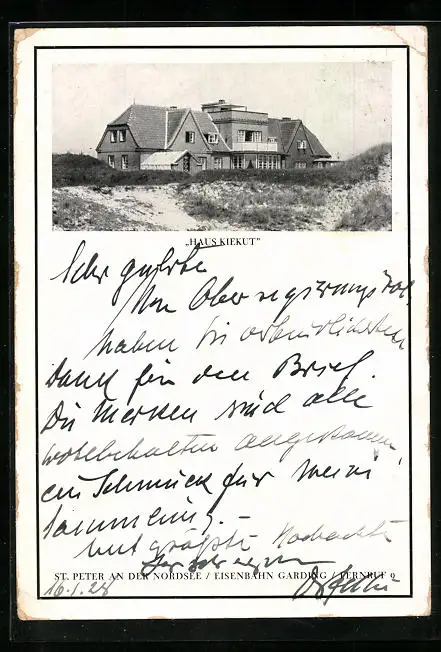 „HAUS KIEKUT"
Sehr geehrter
Herr Oberregierungsrat
haben Sie verbindlichsten
Dank für den Brief.
Die Marken sind alle
wohlbehalten angekommen,
ein Schmuck für meine
Sammlung. –
Mit größter Hochachtung
ST. PETER AN DER NORDSEE / EISENBAHN GARDING / FERNRUF 9